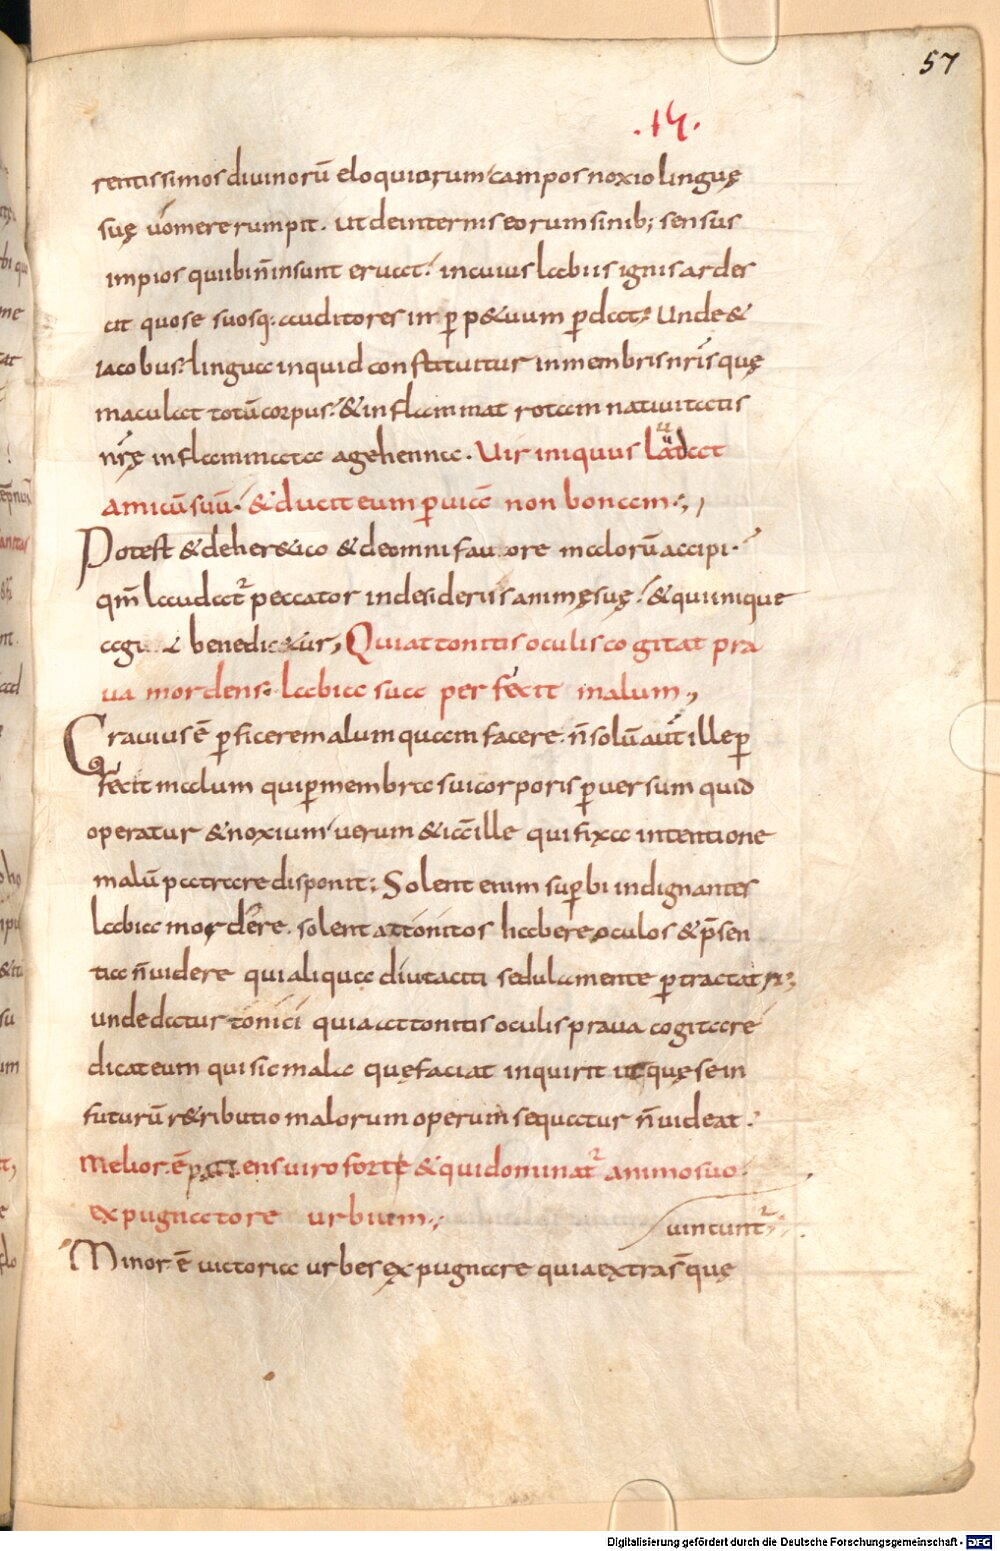 57
.14.
rentissimos diuinorū eloquiorum campos noxio linguę
suę uomere rumpit. ut de internis eorum sinib; sensus
impios qui ibi n̄ insunt eruat. in cuius labiis ignis ardes
cit quo se suosq; auditores in ꝑp&uum ꝑdat; Unde &
iacobus. lingua inquid constituitur in membris nr̄is quę
maculat totū corpus. & inflammat rotam natiuitatis
nr̄ę inflammata a gehenna. Uir iniquus lactat
amicū suū. & ducit eum ꝑ uiā non bonam.,
Potest & de her&ico & de omni fautore malorū accipi.
qm̄ laudat̄ peccator in desideriis animę suę. & qui inique
benedic&ur, Qui attonitis oculis cogitat pra
ua mordens labia sua perfecit malum,
Grauius ē ꝑficere malum quam facere. n̄ solū aut̄ ille ꝑ
fecit malum qui ꝑ membra sui corporis ꝑuersum quid
operatur & noxium uerum &iā ille qui fixa intentione
malū patrare disponit; Solent enim suꝑbi indignantes
labia mordere. solent attonitos habere oculos & p̄sen
tia n̄ uidere qui aliqua diu taciti sedula mente ꝑtractant;
unde datur tonici quia attonitis oculis praua cogitare
dicat eum qui sic mala quę faciat inquirit ut quę se in
futurū r&ributio malorum operum sequatur n̄ uideat.
Melior ē patiens uiro forte & qui dominat̄ animo suo
expugnatore urbium.,
uincunt̄
Minor ē uictoria urbes expugnare quia extra s̄ quę
Digitalisierung gefördert durch die Deutsche Forschungsgemeinschaft - DFG